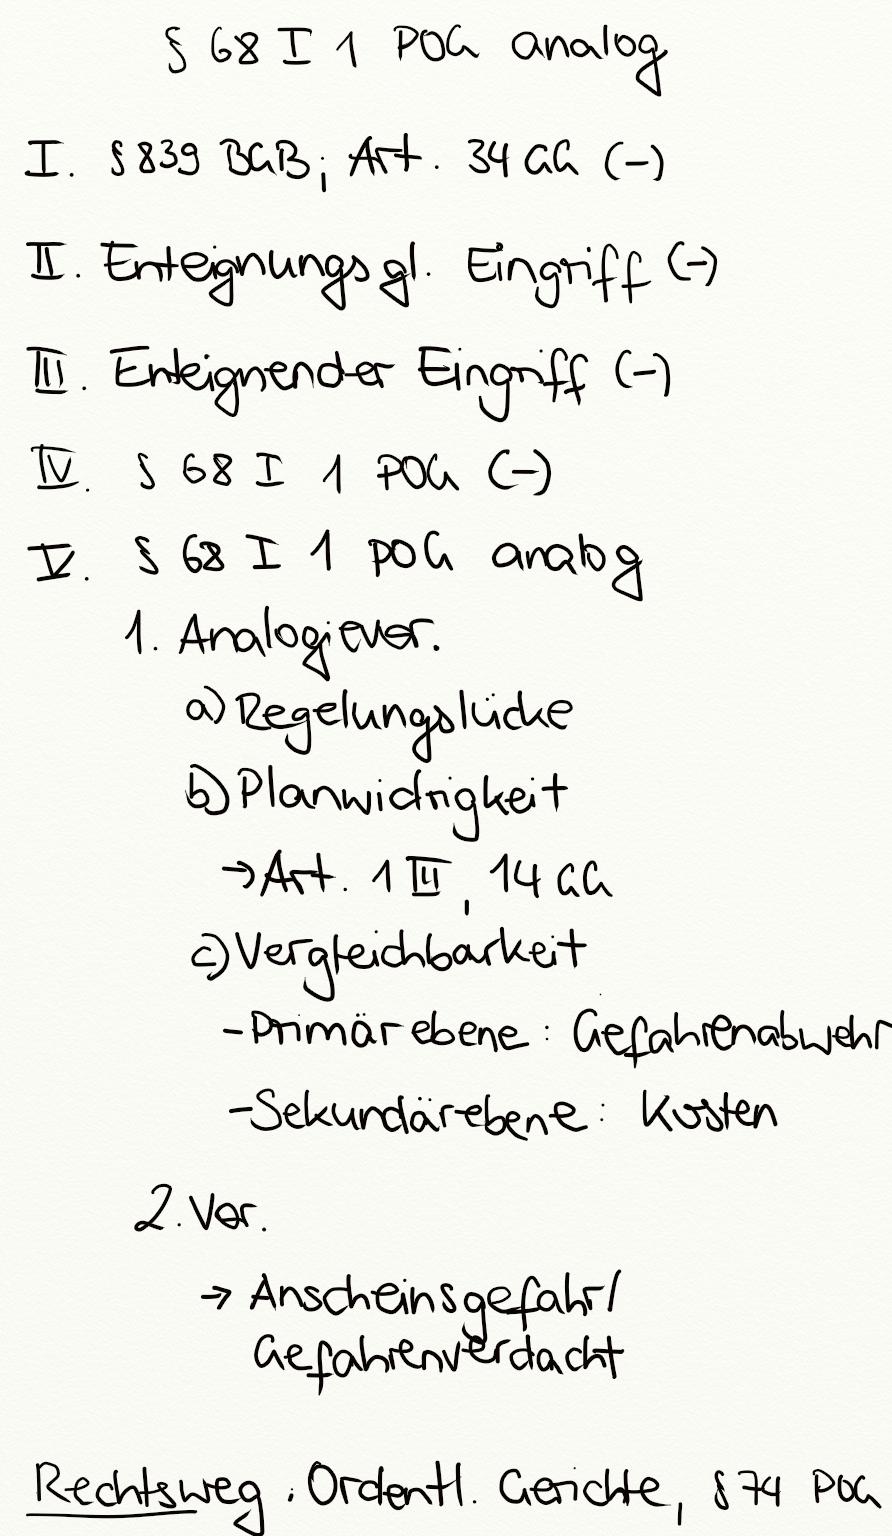 § 68 I 1 POG analog
I. § 839 BGB, Art. 34 GG (-)
II. Enteignungsgl. Eingriff (-)
III. Enteignender Eingriff (-)
IV. § 68 I 1 POG (-)
V. § 68 I 1 POG analog
1. Analogievor.
a) Regelungslücke
b) Planwidrigkeit
→ Art. 1 III, 14 GG
c) Vergleichbarkeit
- Primärebene: Gefahrenabwehr
- Sekundärebene: Kosten
2. Vor.
→ Anscheinsgefahr/
Gefahrenverdacht
Rechtsweg: Ordentl. Gerichte, § 74 POG